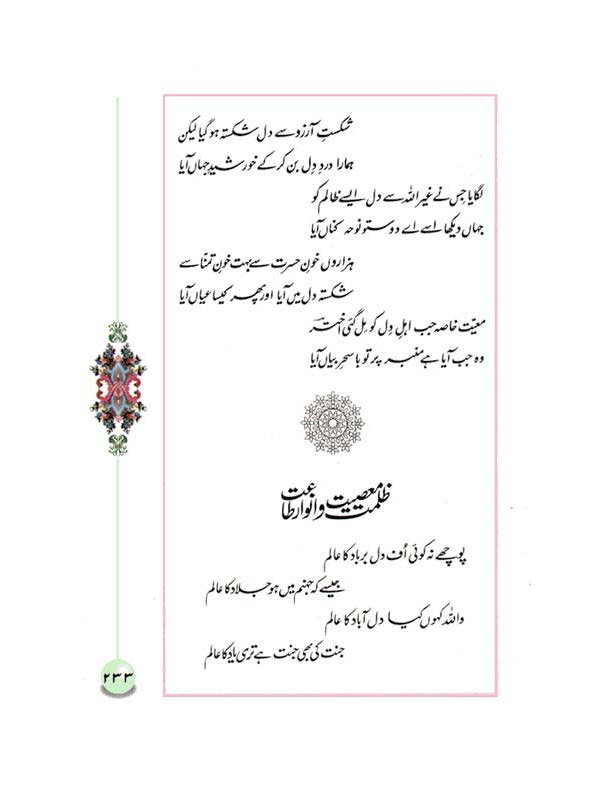 شکستِ آرزو سے دل شکستہ ہوگیا لیکن
ہمارا دردِ دِل بن کر کے خورشیدِ جہاں آیا
لگایا جِس نے غیر اللہ سے دل ایسے ظالم کو
جہاں دیکھا اسے اے دوستو نوحہ کناں آیا
ہزاروں خونِ حسرت سے بہت خونِ تمنا سے
شکستہ دل میں آیا اور پھر کیسا عیاں آیا
معیّت خاصہ جب اہلِ دِل کو مِل گئی اختر
وہ جب آیا ہے منبر پر تو با سحرِ بیاں آیا
ظلمتِ معصیت و انوارِ طاعت
پوچھے نہ کوئی اُف دل برباد کا عالم
جیسے کہ جہنم میں ہو جلاد کا عالم
واللہ کہوں کیا دل آباد کا عالم
جنت کی بھی جنت ہے تری یاد کا عالم
۲۳۳